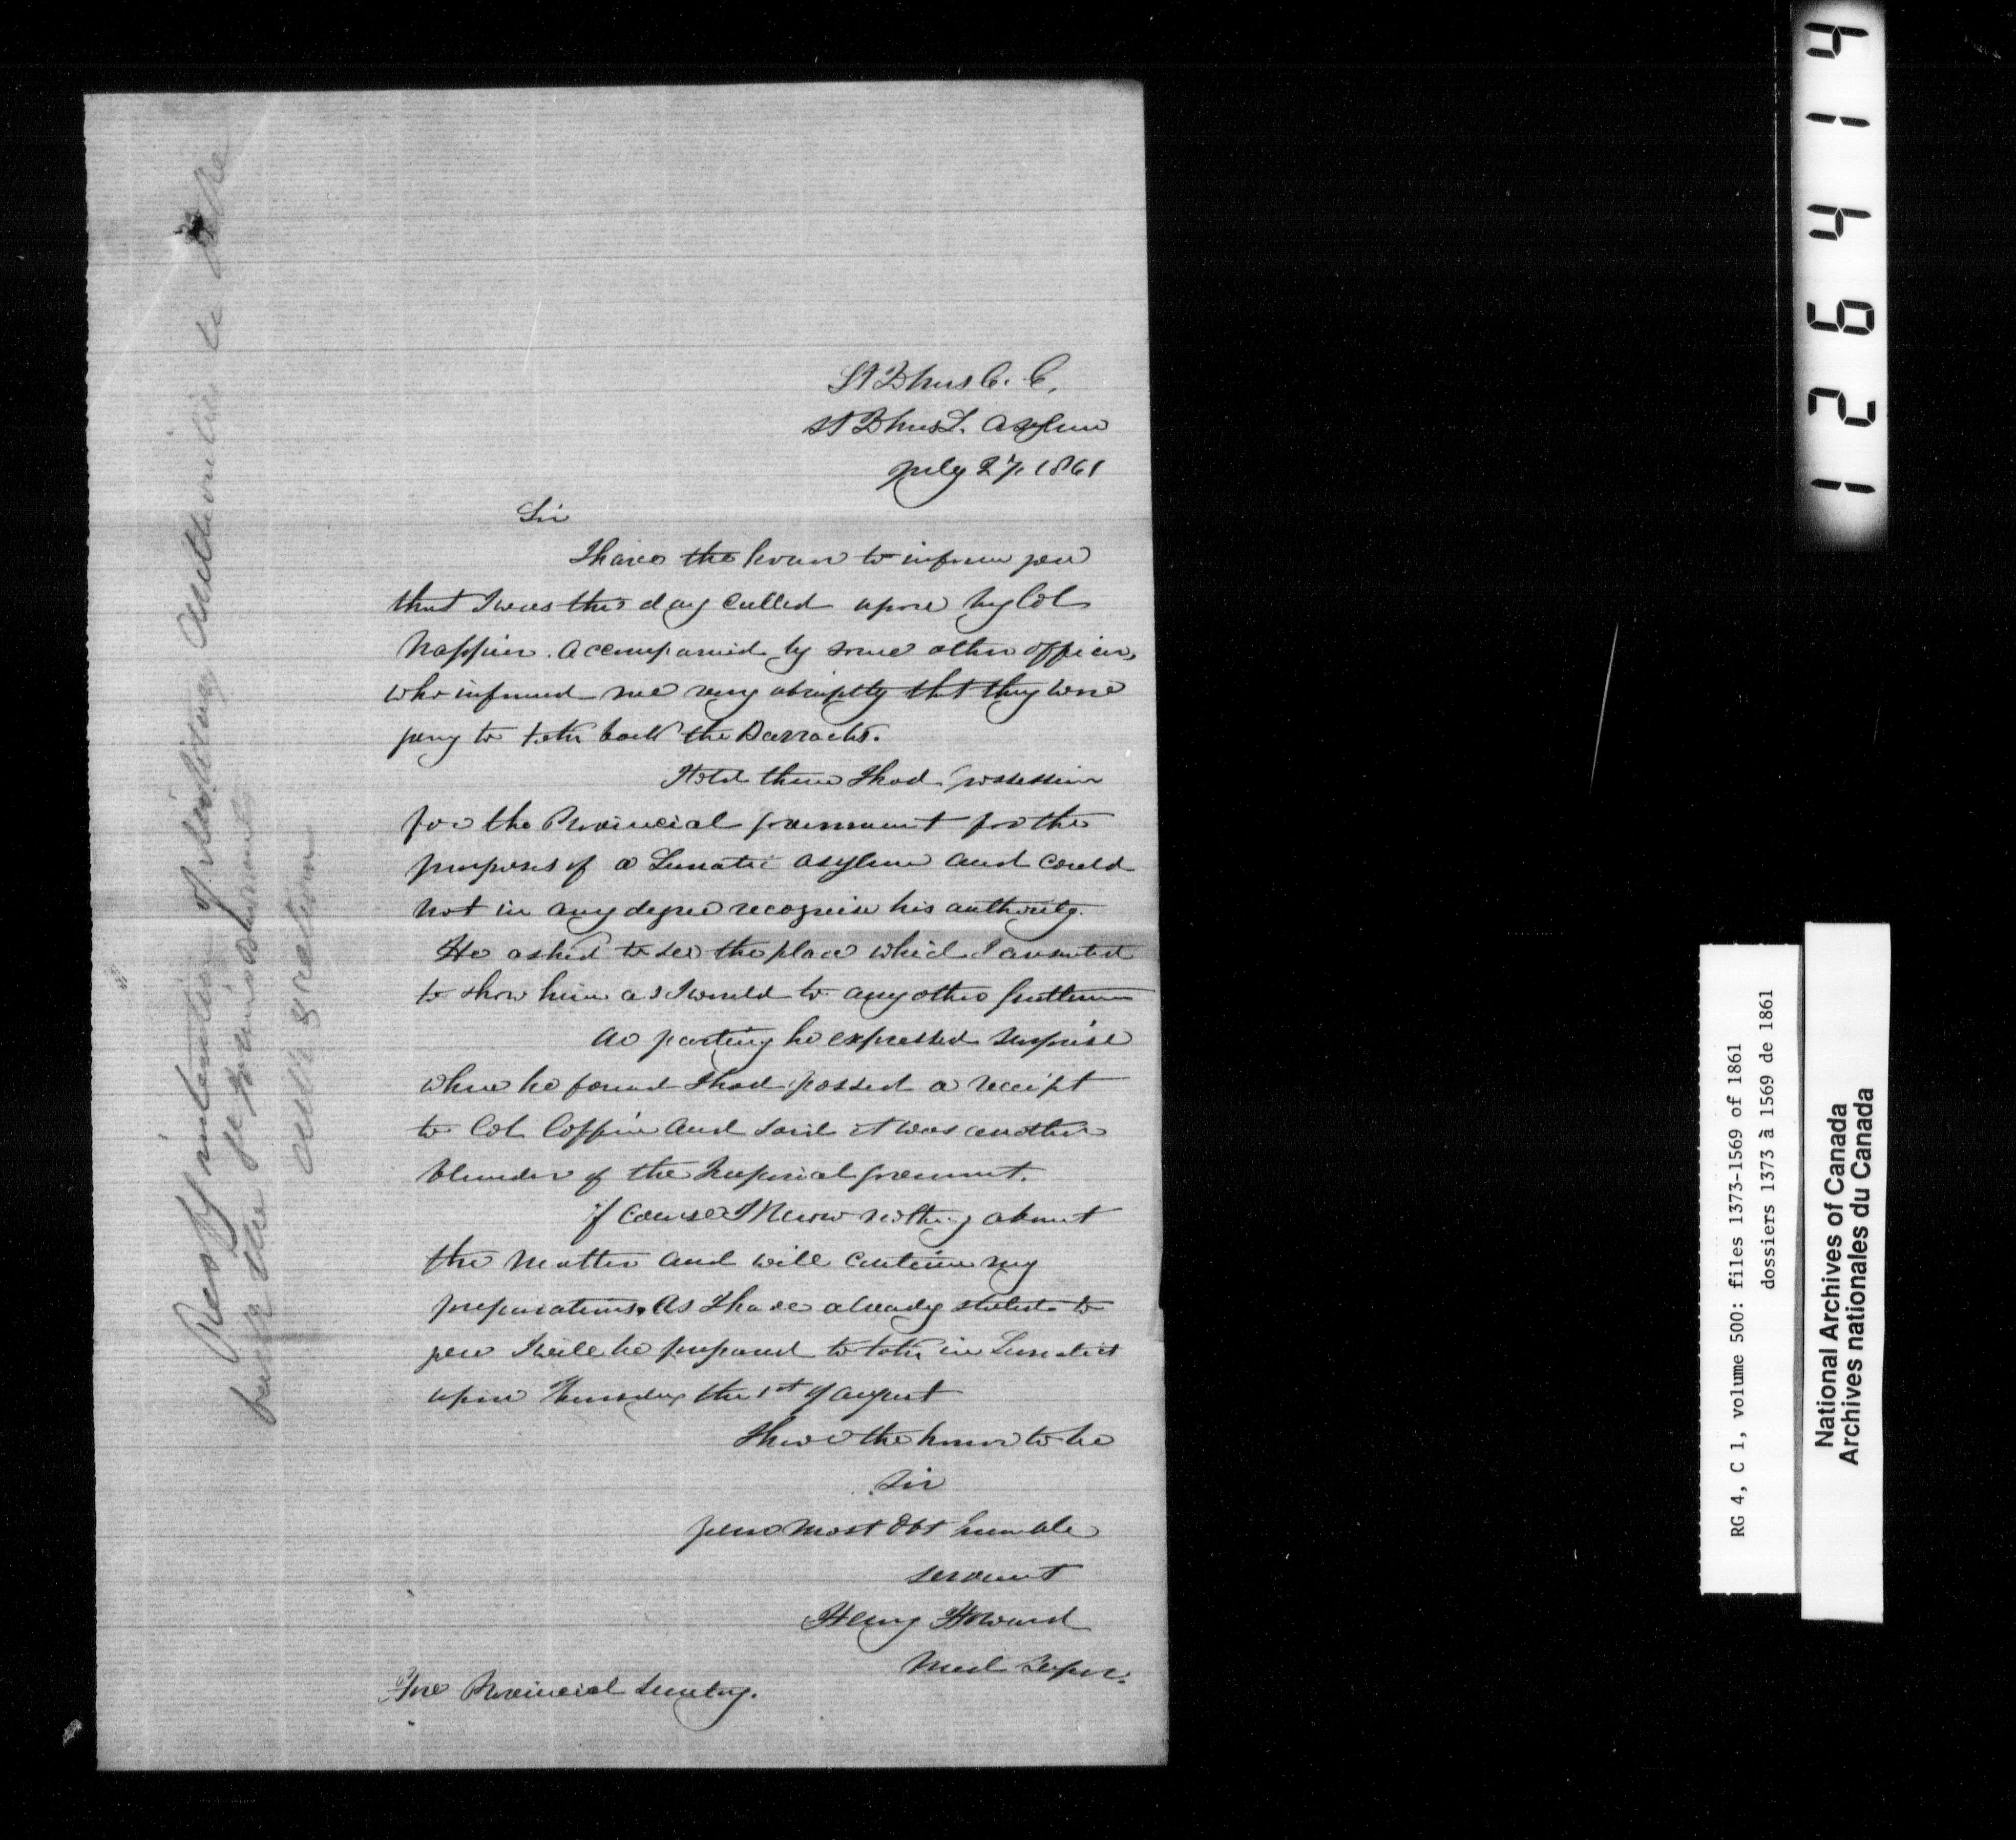 St Johns C. E,
St Johns L. Asylum
July 27, 1861
Sir
I have the honor to inform you
that I was this day called upon by Col
Nappier. accompanied by some other officers,
who informed me very abruptly that they were
going to take back the Barracks.
I told them I had possession
for the Provincial government for the
purposes of a Lunatic asylum and could
not in any degree recognise his authority.
He asked to see the place which I consented
to show him as I would to any other gentleman
as parting he expressed surprise
when he found I had passed a receipt
to Col Coffin and said it was another
blunder of the Imperial government.
of course I know nothing about
the matter and will continue my
preparations, As I have already stated to
you I will be prepared to take in Lunatics
upon Thursday the 1st of august
I have the honor to be
Sir
your most Obt humble
servant
Henry Howard
Med Super.
The Provincial Secretary.
Resp intention of Military Authorities to take
back the
National Archives of Canada
Archives nationales du Canada
RG 4, C 1, volume 500: files 1373-1569 of 1861
dossiers 1373 à 1569 de 1861
126414